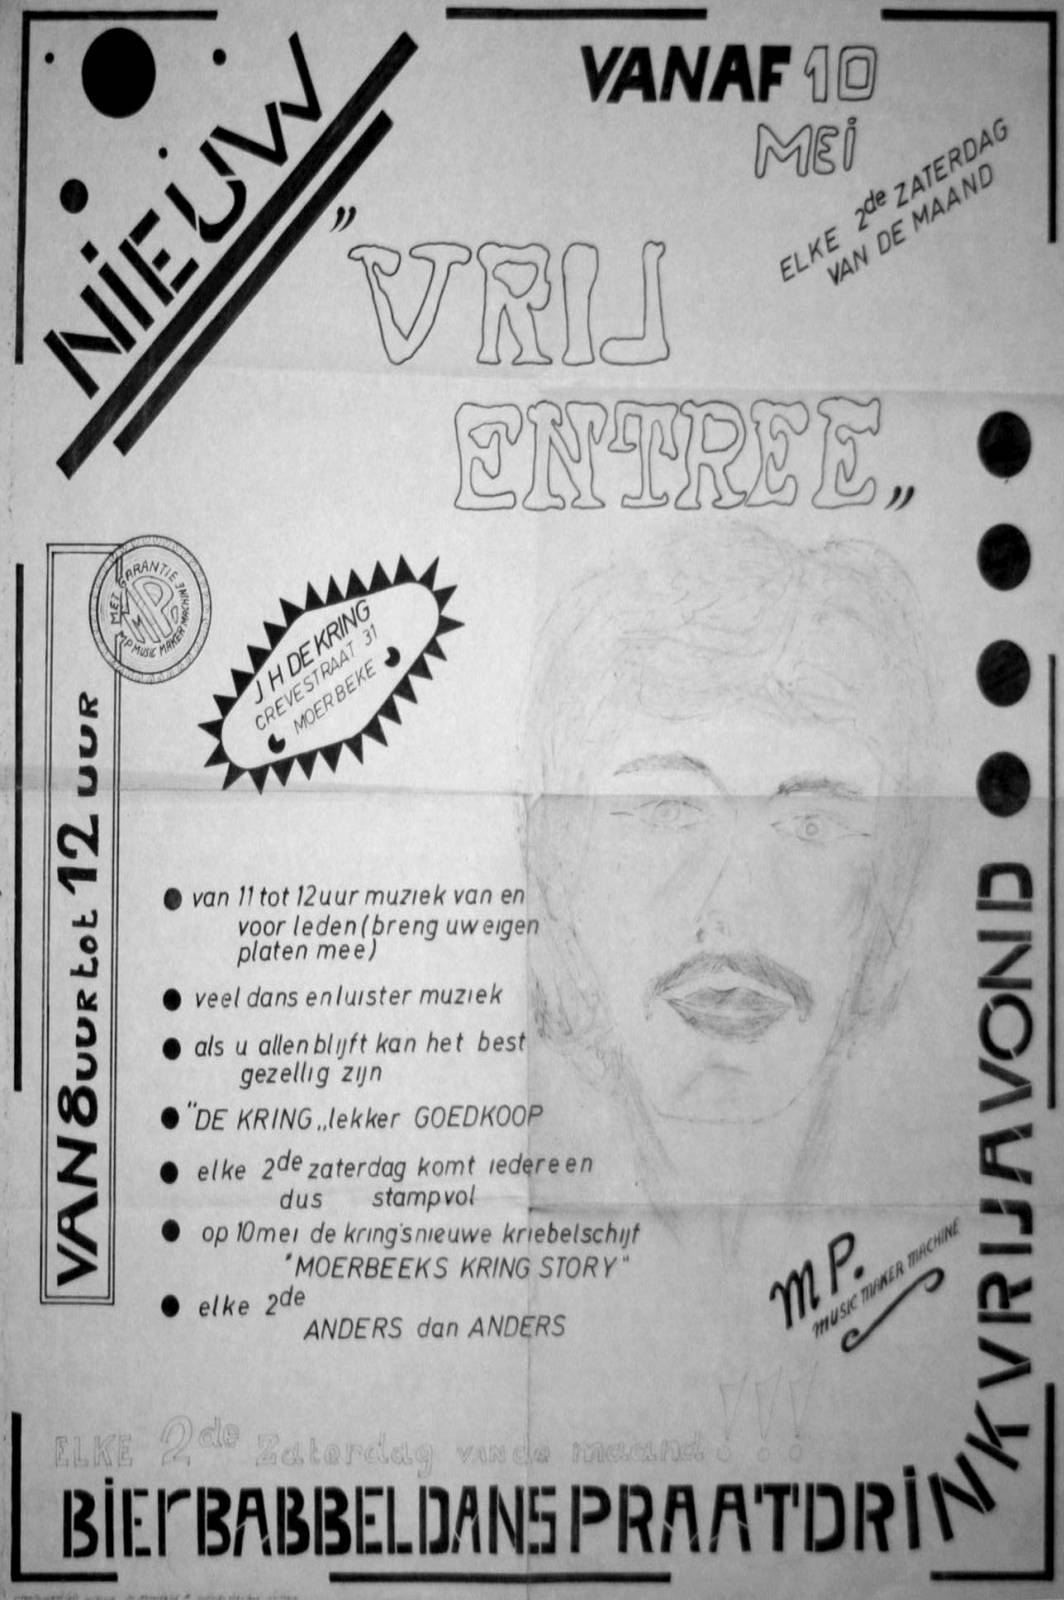 NIEUW
VANAF 10
MEI
ELKE 2de ZATERDAG
VAN DE MAAND
"VRIJ
ENTREE"
MET GARANTIE
MP.
MP MUSIC MAKER MACHINE
VAN 8 UUR tot 12 UUR
J H DE KRING
CREVESTRAAT 31
MOERBEKE
van 11 tot 12 uur muziek van en
voor leden (breng uw eigen
platen mee)
veel dans en luister muziek
als u allen blijft kan het best
gezellig zijn
"DE KRING„ lekker GOEDKOOP
elke 2de zaterdag komt iedereen
dus stampvol
op 10 mei de kring's nieuwe kriebelschijf
"MOERBEEKS KRING STORY"
elke 2de
ANDERS dan ANDERS
MP.
MUSIC MAKER MACHINE
ELKE 2de Zaterdag van de maand!!!
BIERBABBELDANSPRAATDRINKVRIJAVOND